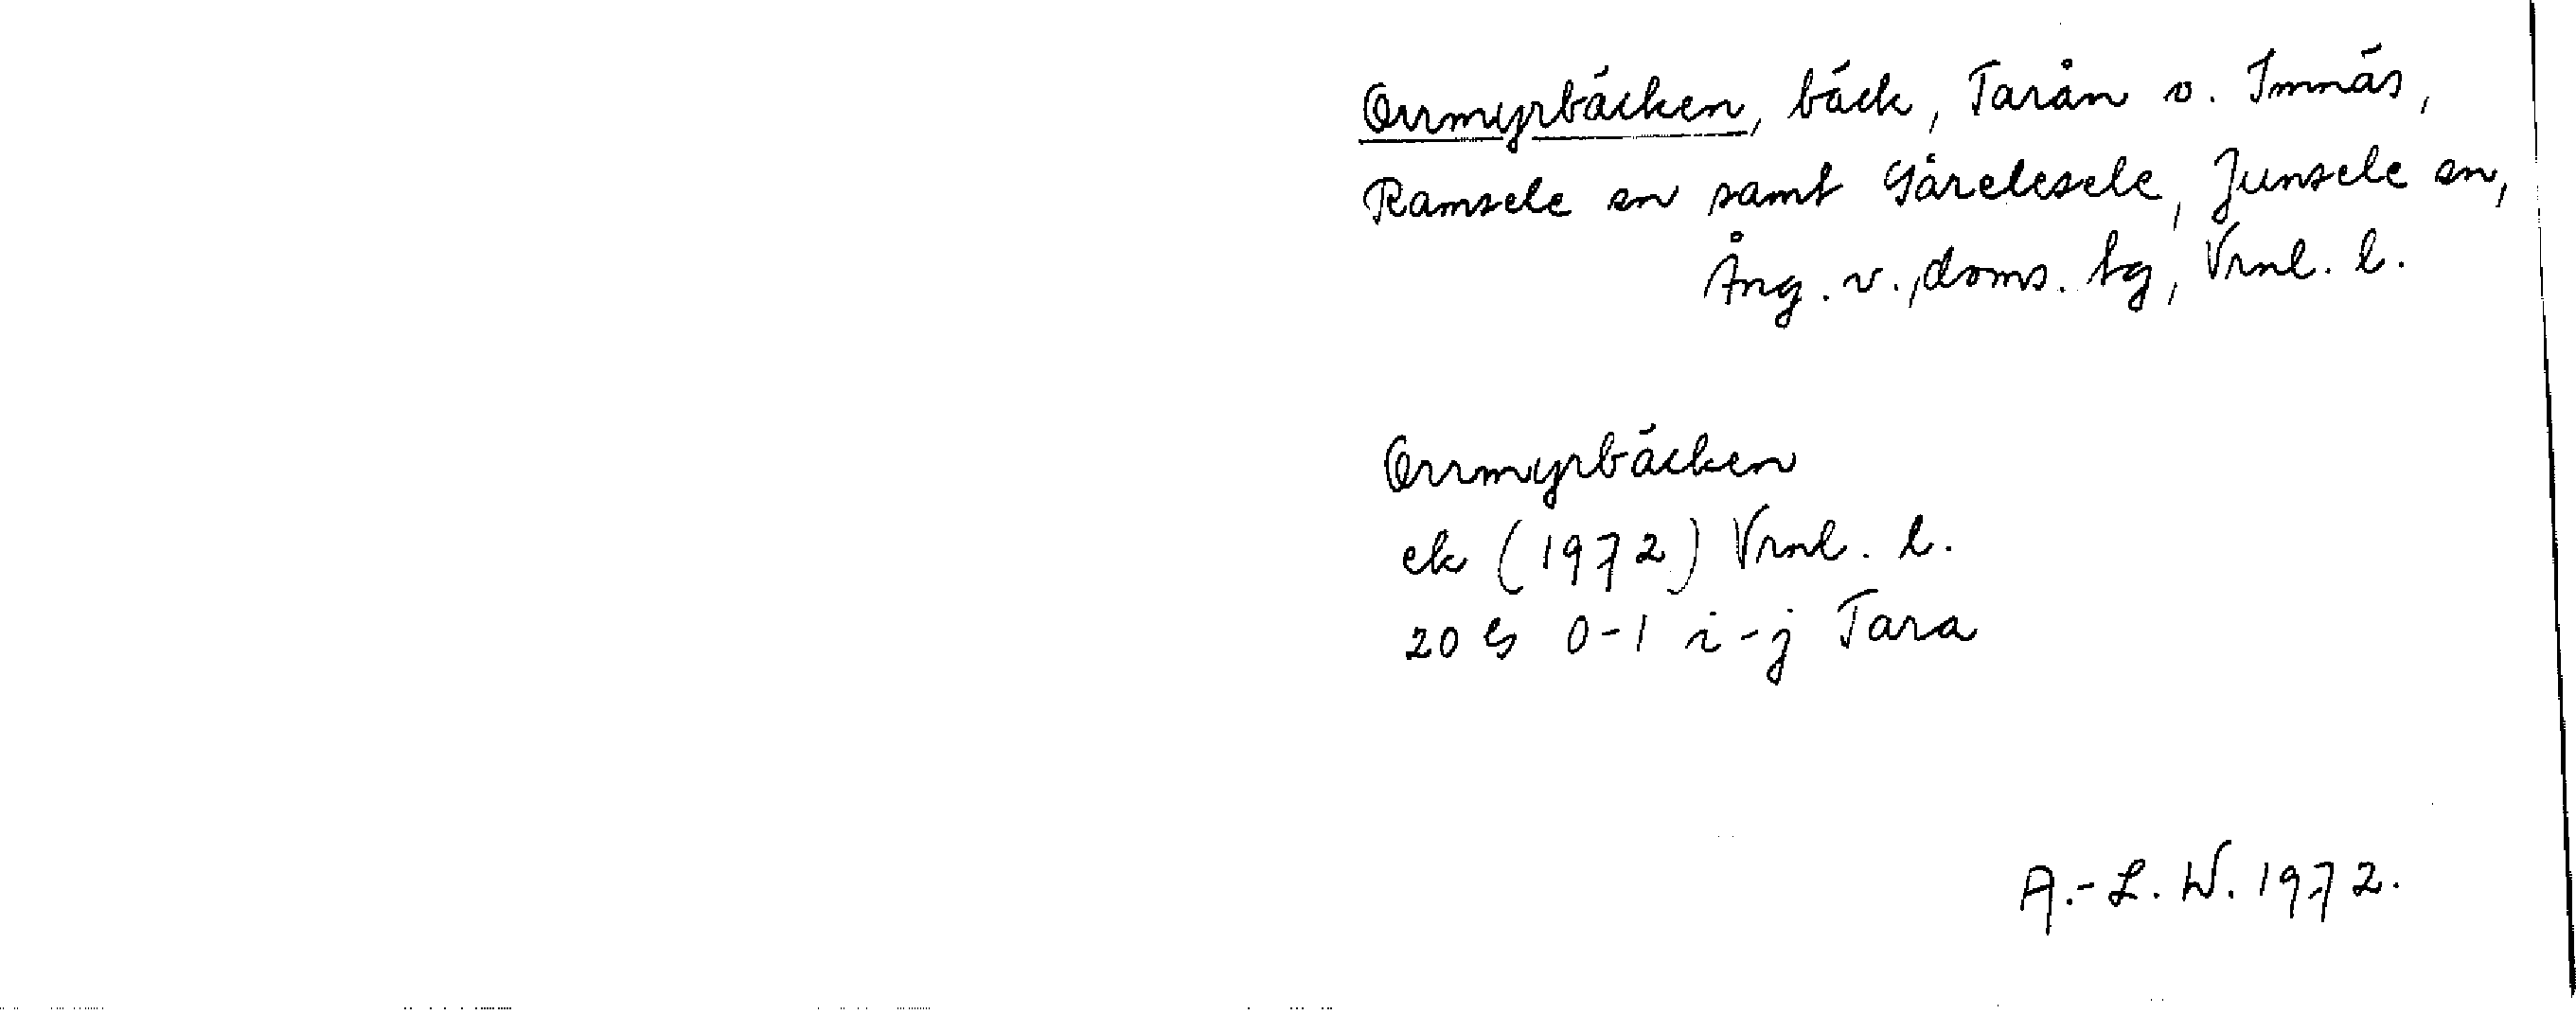 Orrmyrbäcken, bäck, Tarån o. Imnäs,
Ramsele sn samt Gårelesele, Junsele sn,
Ång. v., doms. tg, Vrnl. l.
Orrmyrbäcken
ek (1972) Vrnl. l.
20 G 0-1 i-j Tara
A.-L. W. 1972.